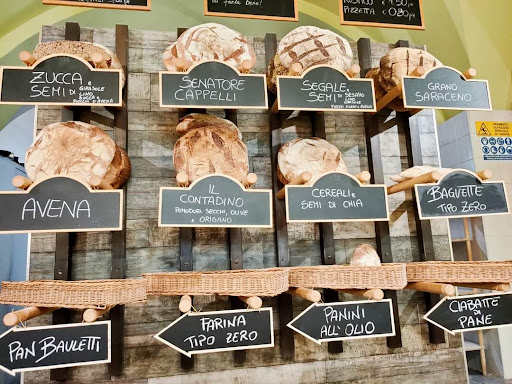 PIZZETTA € 0,80
ZUCCA e
SEMI di GIRASOLE
LINO
AVENA e
FIOCCHI D'AVENA
SENATORE
CAPPELLI
SEGALE,
SEMI di SESAMO
GIRASOLE
GRANO
SARACENO
AVENA
IL CONTADINO
POMODORI SECCHI, OLIVE
e ORIGANO
CEREALI e
SEMI di CHIA
BAGUETTE
TIPO ZERO
PAN BAULETTI
FARINA
TIPO ZERO
PANINI
ALL'OLIO
CIABATTE
di PANE